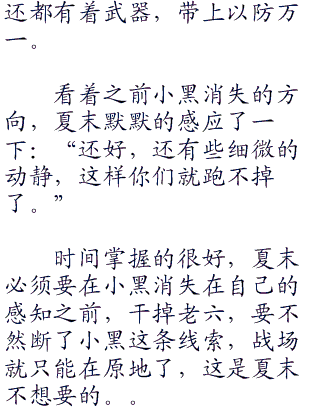 还都有着武器，带上以防万
一。
看着之前小黑消失的方
向，夏末默默的感应了一
下：“还好，还有些细微的
动静，这样你们就跑不掉
了。”
时间掌握的很好，夏末
必须要在小黑消失在自己的
感知之前，干掉老六，要不
然断了小黑这条线索，战场
就只能在原地了，这是夏末
不想要的。。